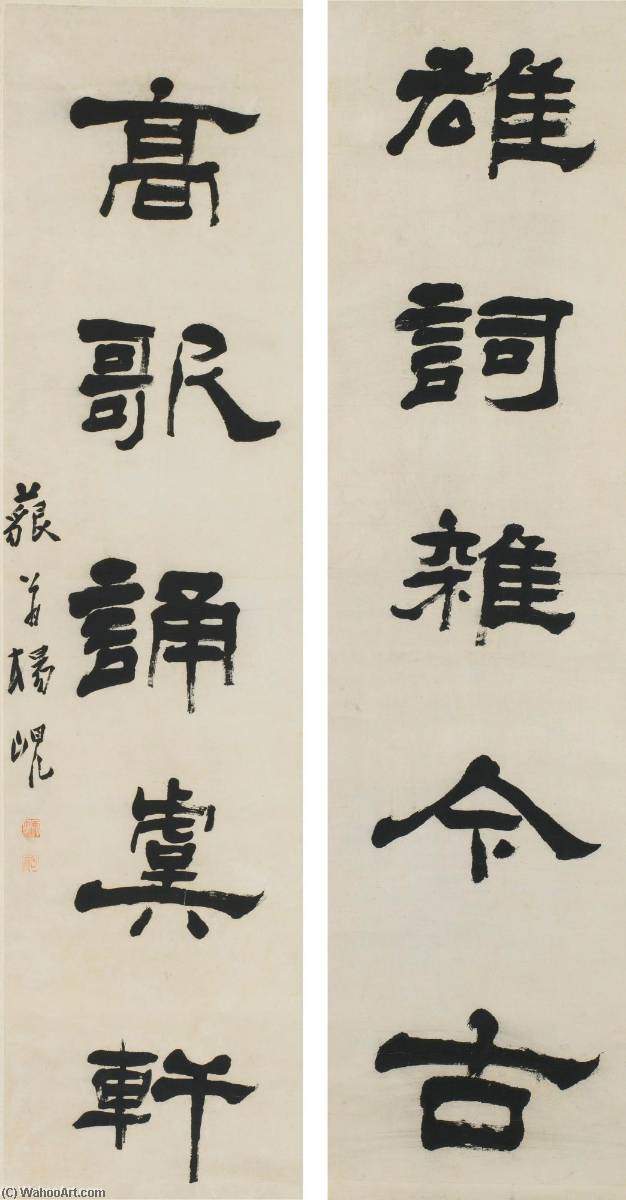 雄詞雜今古
高歌誦虞軒
藐翁楊峴
(C) WahooArt.com